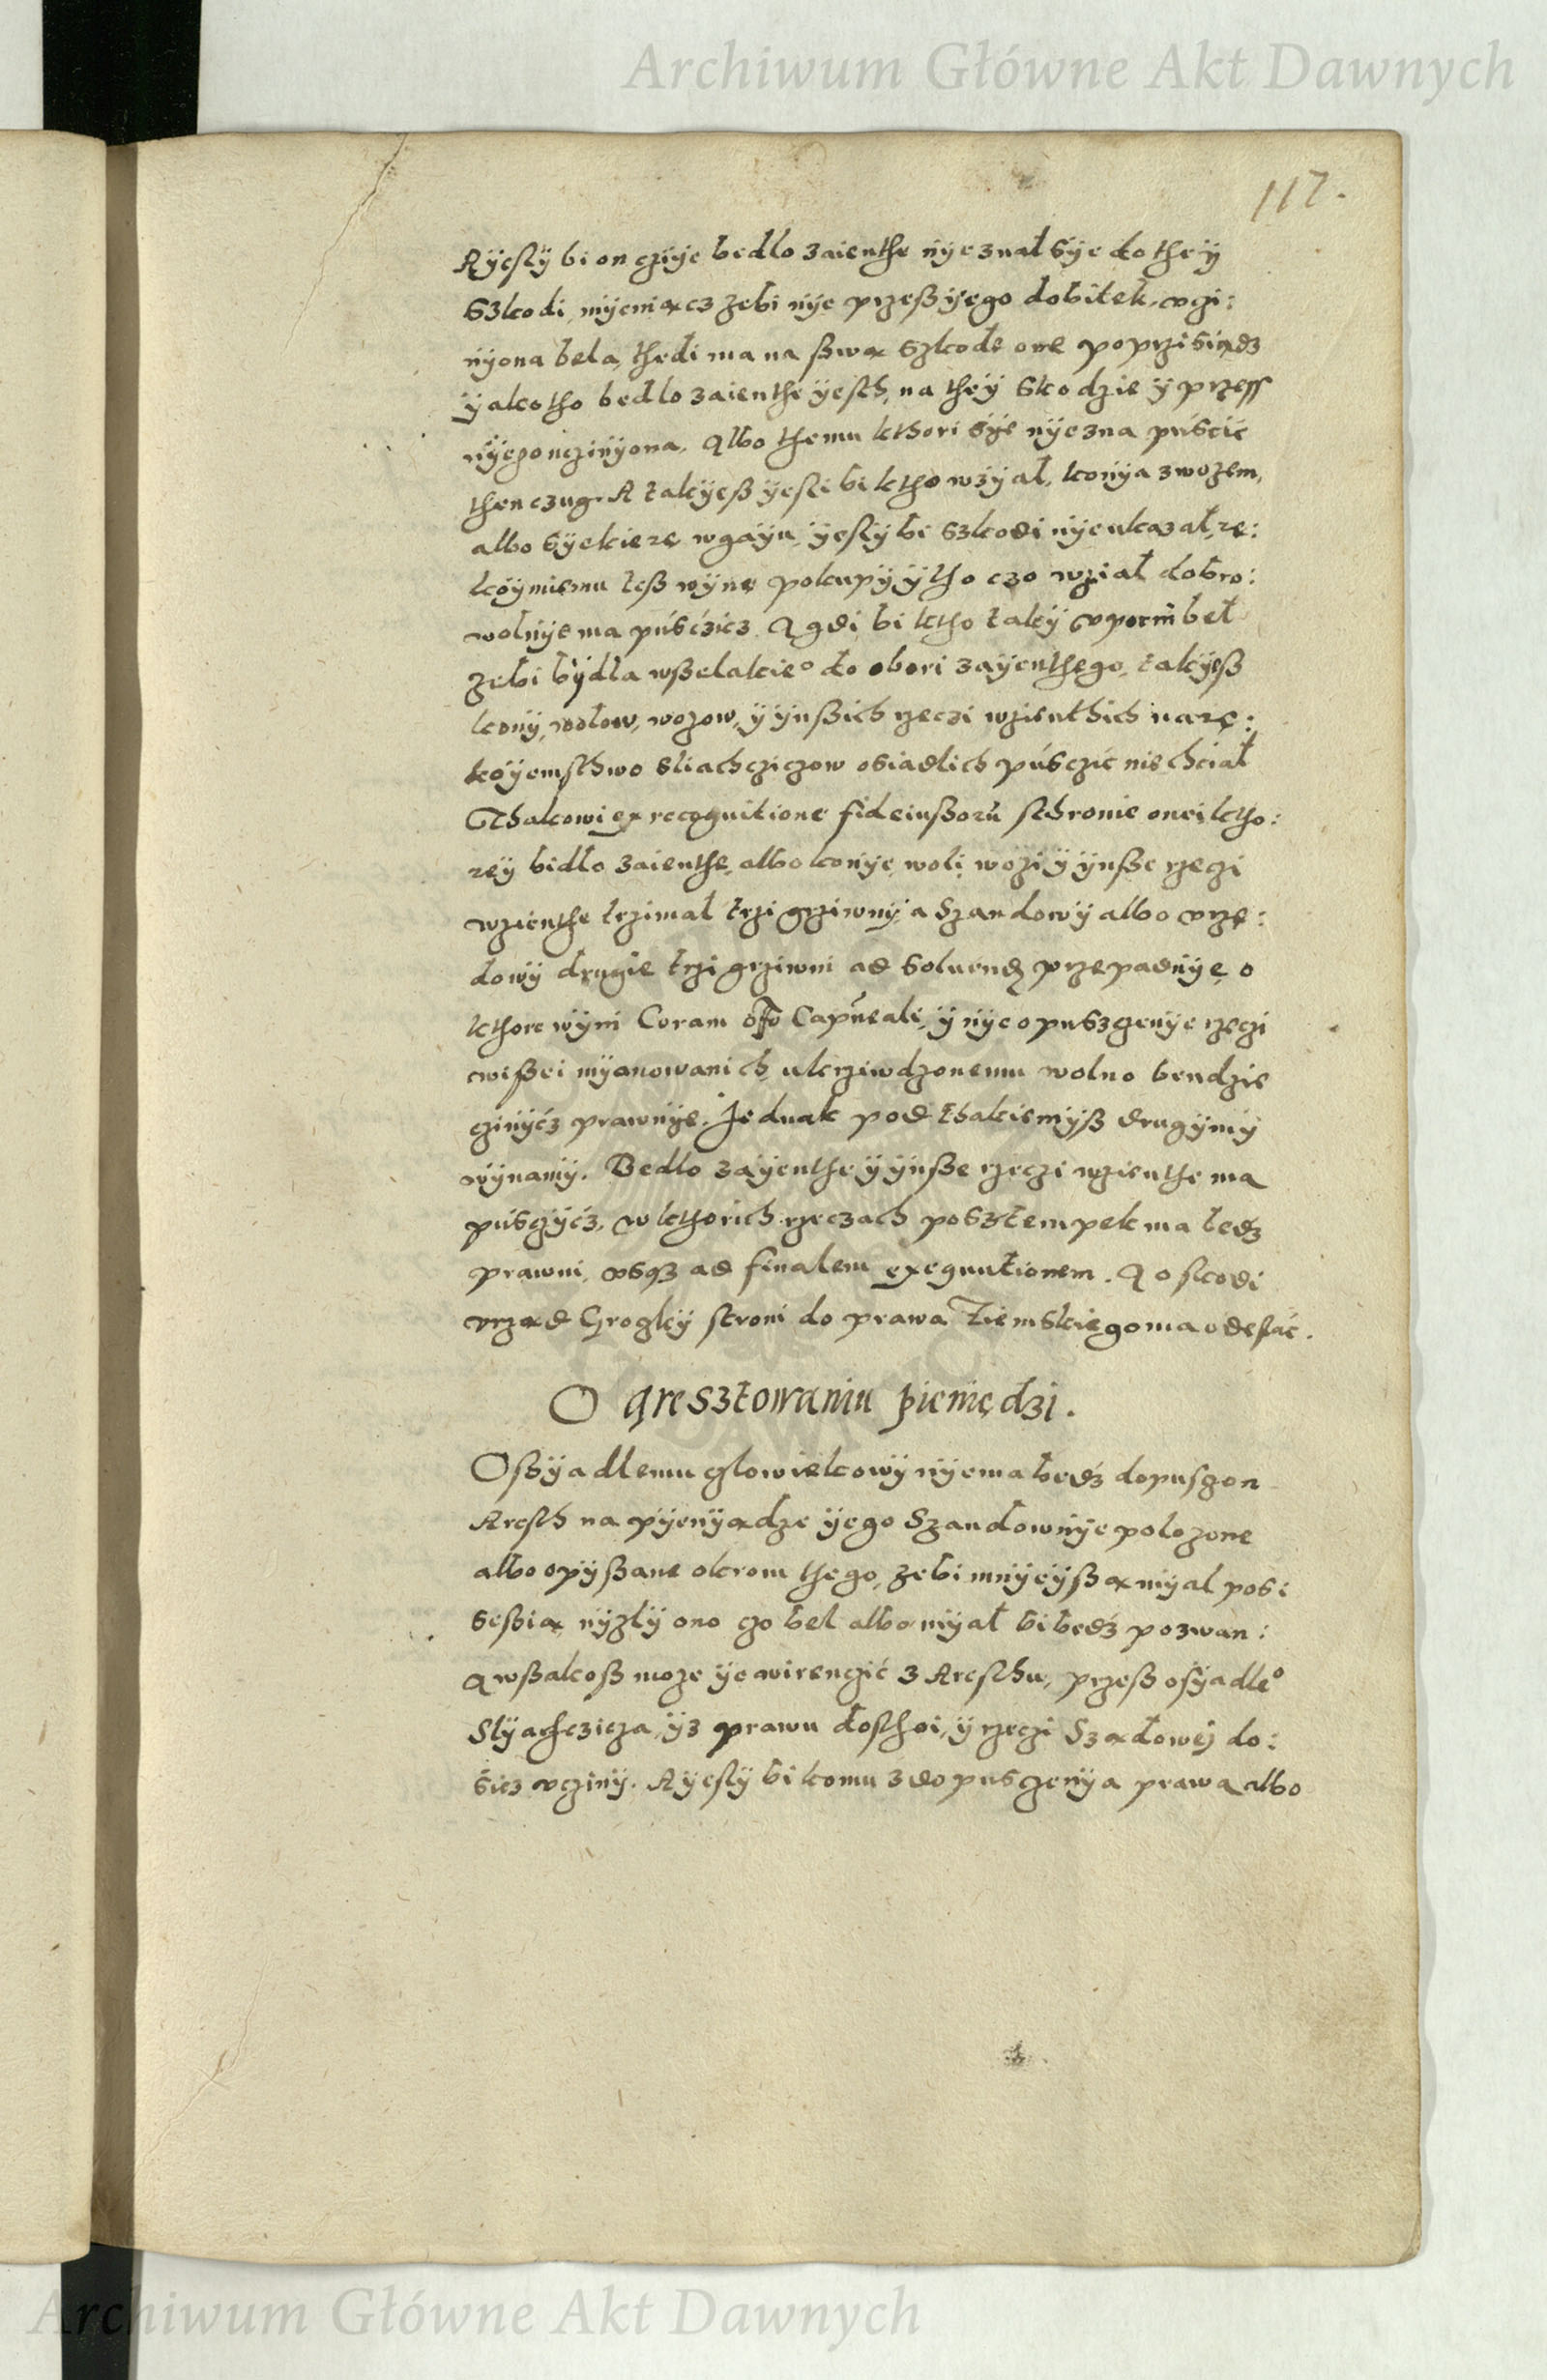 Archiwum Główne Akt Dawnych
117.
A yesly bi on czyye bedlo zaienthe nye znał sye do they
Szkodi, myeniącz zebi nye przeß yego dobitek, vczi:
nyona bela, thedi ma na ßwą szkode one poprzisiądz
yako tho bedlo zaienthe yesth, na they skodzie y przess
nyego uczinyona. Albo themu kthori sye nye zna puścić
then czug. A takyeß yesli bi ktho wzyał, konya z wozem,
albo syekierę w gayu, yesly bi szkodi nye ukazał, rę:
koymiemu teß wynę pokupy y tho czo wział dobro:
wolnye ma puśczicz. A gdi bi ktho taky vporni beł
zebi bydła wßelakie° do obori zayenthego, takyeß
kony, wołow, wozow, y ynßich rzeczi wzienthich na rę:
koyemsthwo sliachcziczow osiadlich puśczić nie chciał
Thakowi ex recognitione fideiußorũ sthronie onei ktho:
rey bidło zaienthe, albo konye, woli, wozi y ynße rzeczi
wzienthe trzimał trzi grziwny, a Szandowy albo vrzę:
dowy drugie trzi grziwni ad soluend przepadnye, o
kthore wyni Coram offo Capneali, y nye opuszczenye rzeczi
wißei myanowanich, ukrziwdzonemu wolno bendzie
czinyćz prawnye. Jednak pod thakiemyß drugymy
wynamy. Bedlo zayenthe y ynße rzeczi wzienthe ma
puśczyćz, w kthorich rzeczach posztempek ma bedz
prawni, vsqz ad finalem exequutionem. A o skodi
vrząd Grogky stroni do prawa Ziemskiego ma odesłać.
O Aresztowaniu pieniędzi.
Oßyadlemu czlowiekowy nye ma bedz dopusczon
Aresth na pyenyądze yego Szandownye polozone
albo opyßane okrom thego, zebi mnyeyßą myal posi
seßią nyzly ono czo bel albo myał bi bedz pozwan:
A wßakoß moze ye wirenczić z Aresthu, przeß osyadle°
Slyachczicza, yz prawu dosthoi, y rzeczi Sządowej do:
sicz vcziny. A yesly bi komu z dopusczenya prawa albo
Archiwum Główne Akt Dawnych